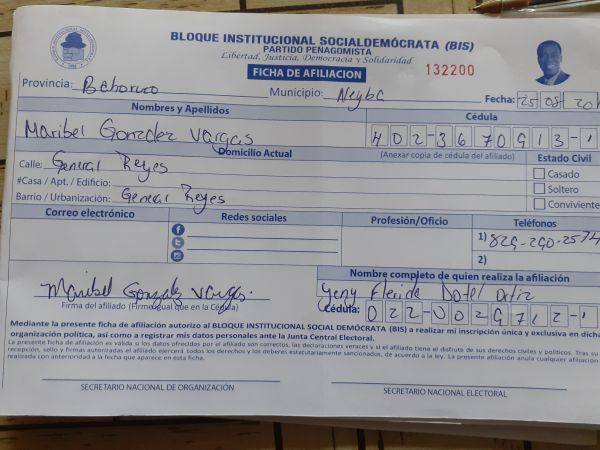 BLOQUE INSTITUCIONAL SOCIALDEMÓCRATA (BIS)
PARTIDO PEÑAGOMISTA
Libertad, Justicia, Democracia y Solidaridad
FICHA DE AFILIACION
132200
Provincia: Bahoruco Municipio: Neyba Fecha: 25 08 20
Nombres y Apellidos Cédula
Maribel Gonzalez Vargas 402-3670913-1
Domicilio Actual (Anexar copia de cédula del afiliado) Estado Civil
Calle: General Reyes Casado
#Casa / Apt. / Edificio: Soltero
Barrio / Urbanización: General Reyes Conviviente
Correo electrónico Redes sociales Profesión/Oficio Teléfonos
1) 829-290-2574
2)
Maribel Gonzalez Vargas.
Firma del afiliado (Firme igual que en la Cédula)
Nombre completo de quien realiza la afiliación
Yeny Dotel Ortiz
Cédula: 022-0029712-1
Mediante la presente ficha de afiliación autorizo al BLOQUE INSTITUCIONAL SOCIAL DEMÓCRATA (BIS) a realizar mi inscripción única y exclusiva en dicha
organización política, así como a registrar mis datos personales ante la Junta Central Electoral.
La presente ficha de afiliación es válida si los datos ofrecidos por el afiliado son correctos, las declaraciones veraces y si el afiliado tiene el disfrute de sus derechos civiles y políticos. Tras su
recepción, sello y firmas autorizadas el afiliado ejercerá todos los derechos y los deberes estatutariamente sancionados, de acuerdo a la ley. La presente afiliación anula cualquier afiliación
realizada con anterioridad a la fecha que aparece en esta ficha.
SECRETARIO NACIONAL DE ORGANIZACIÓN SECRETARIO NACIONAL ELECTORAL